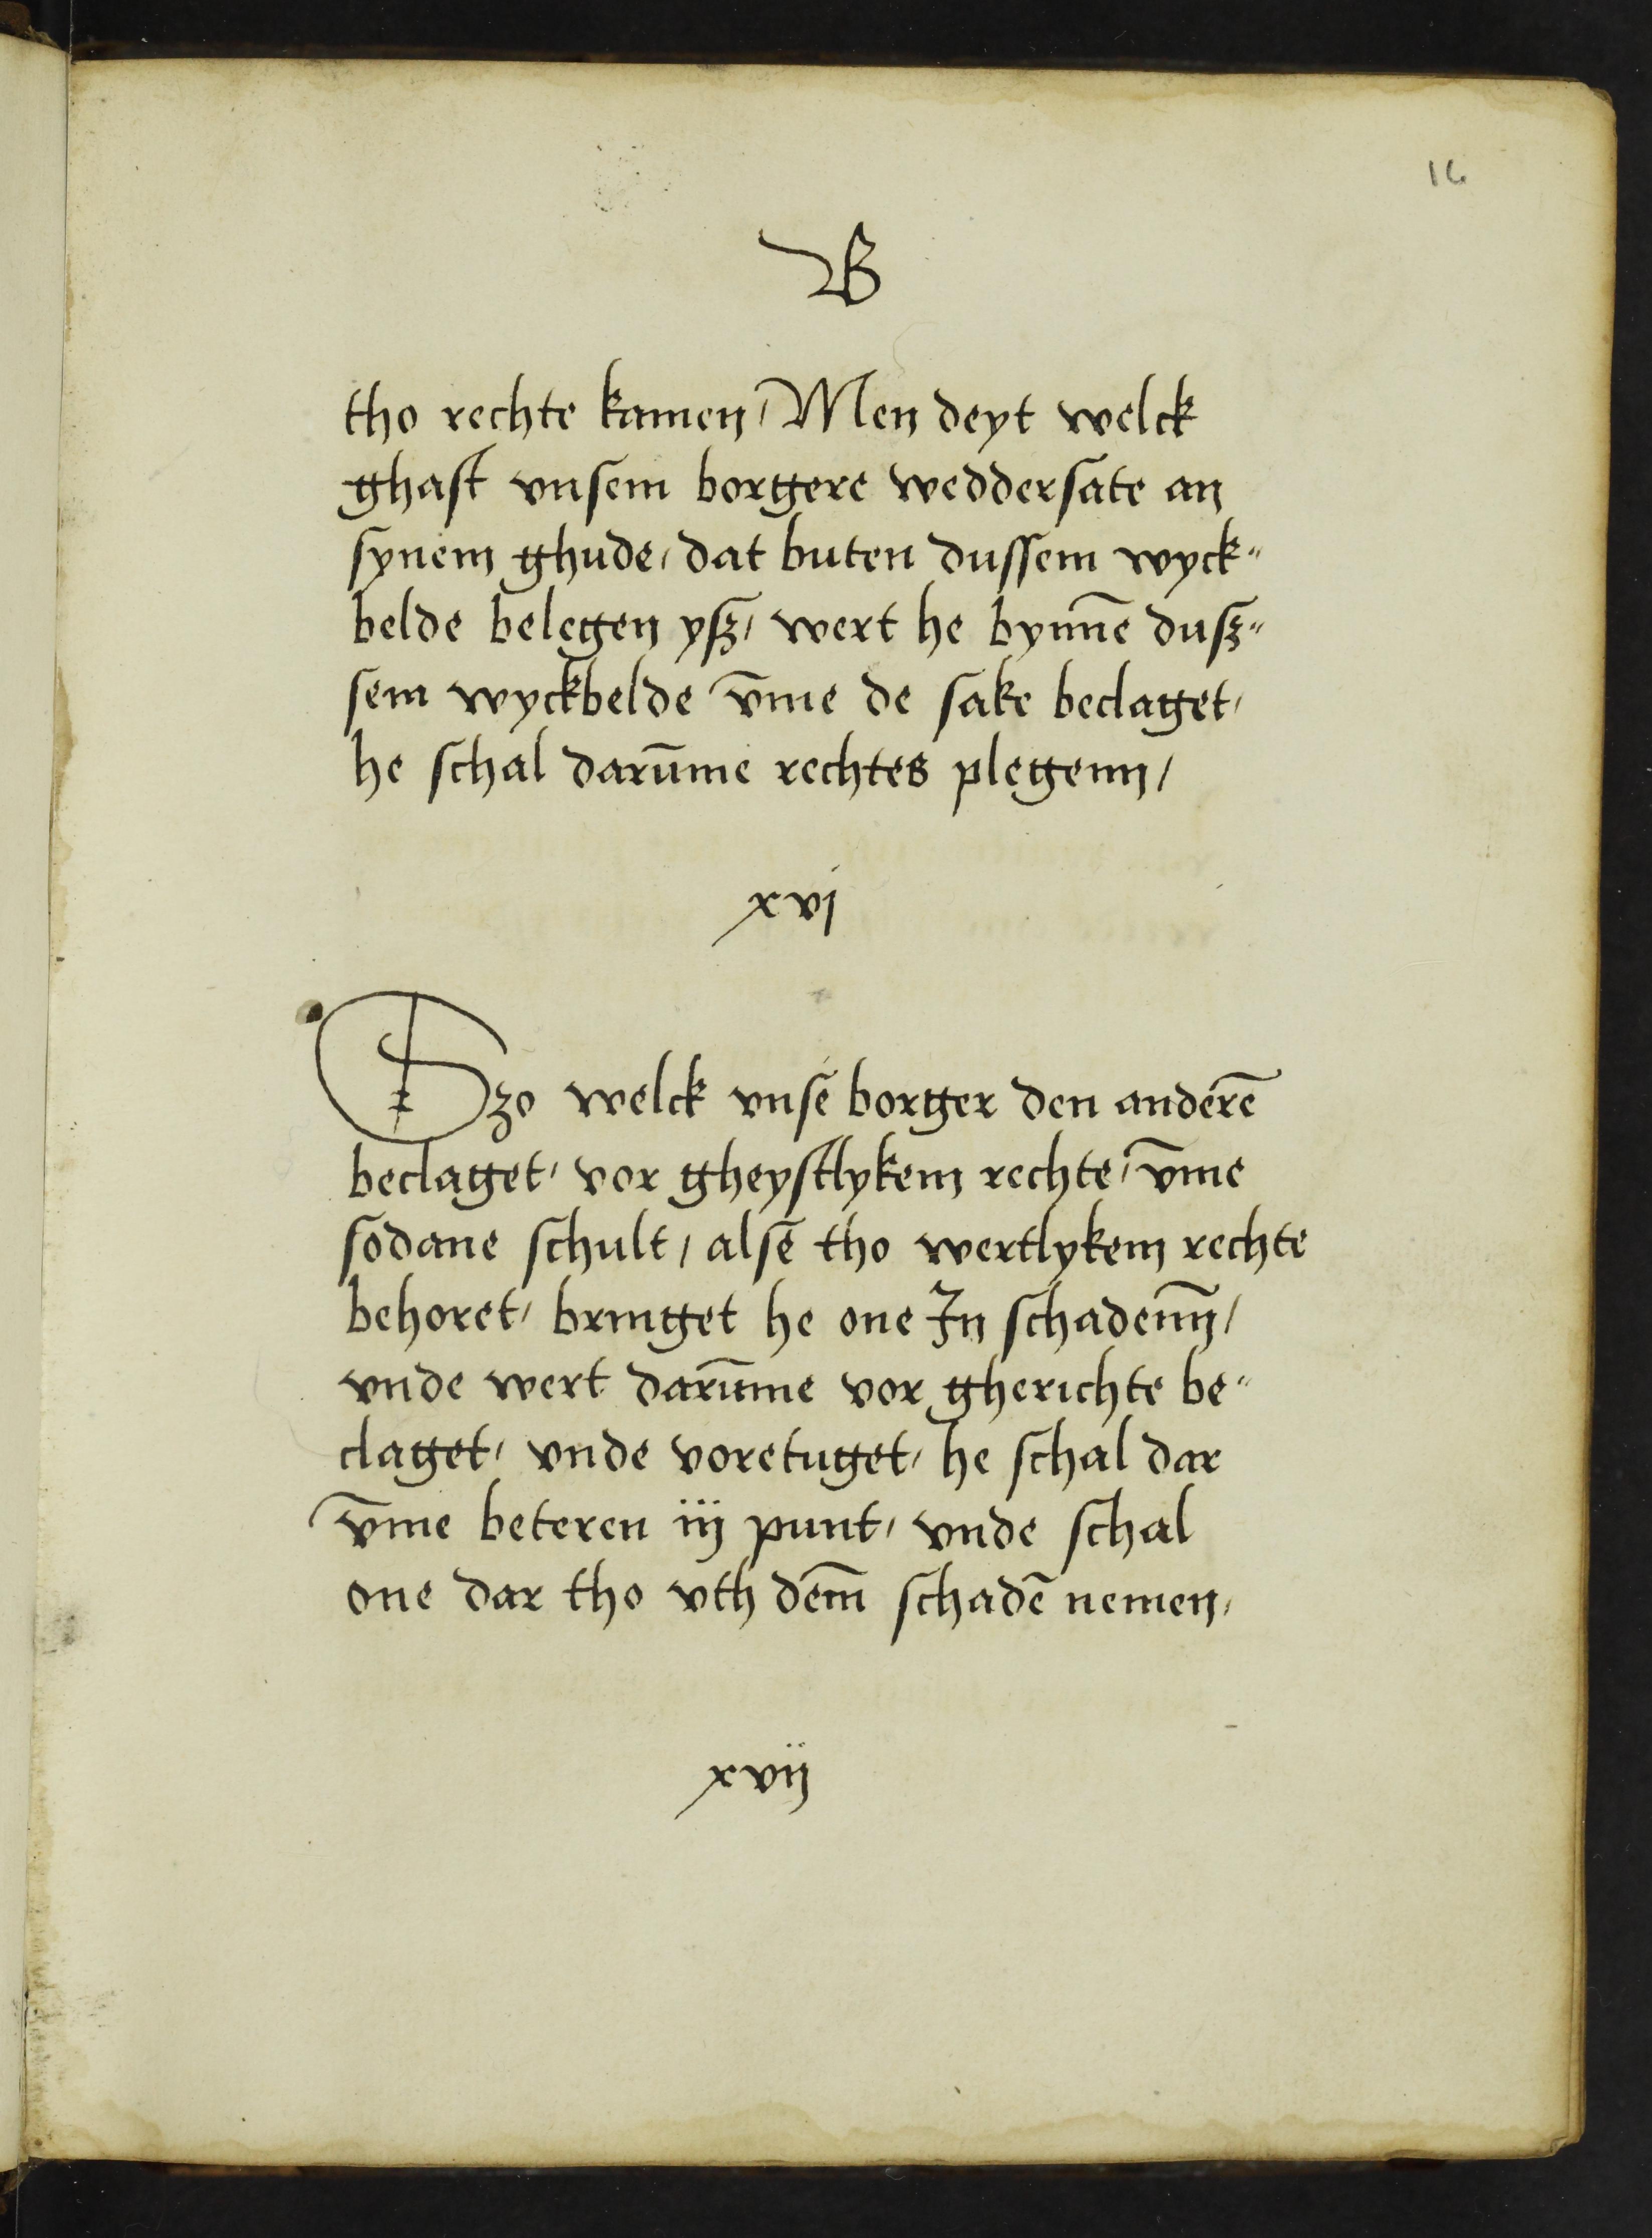 16
B
tho rechte kamen / Men deyt welck
ghast vnsem borgere weddersate an
synem ghude / dat buten dussem wyck„
belde belegen ysz / wert he bynne͞ dusz„
sem wyckbelde v̄me de sake beclaget /
he schal darūme rechtes plegenn /
xvi
Szo welck vnse borger den anderē
beclaget / vor gheystlykem rechte / v̄me
sodane schult / alsē tho wertlykem rechte
behoret / bringet he one In schadenn̄ /
vnde wert darūme vor gherichte be„
claget / vnde voretuget / he schal dar
v̄me beteren iij punt / vnde schal
one dar tho vth dem̄ schadē nemen /
xvij